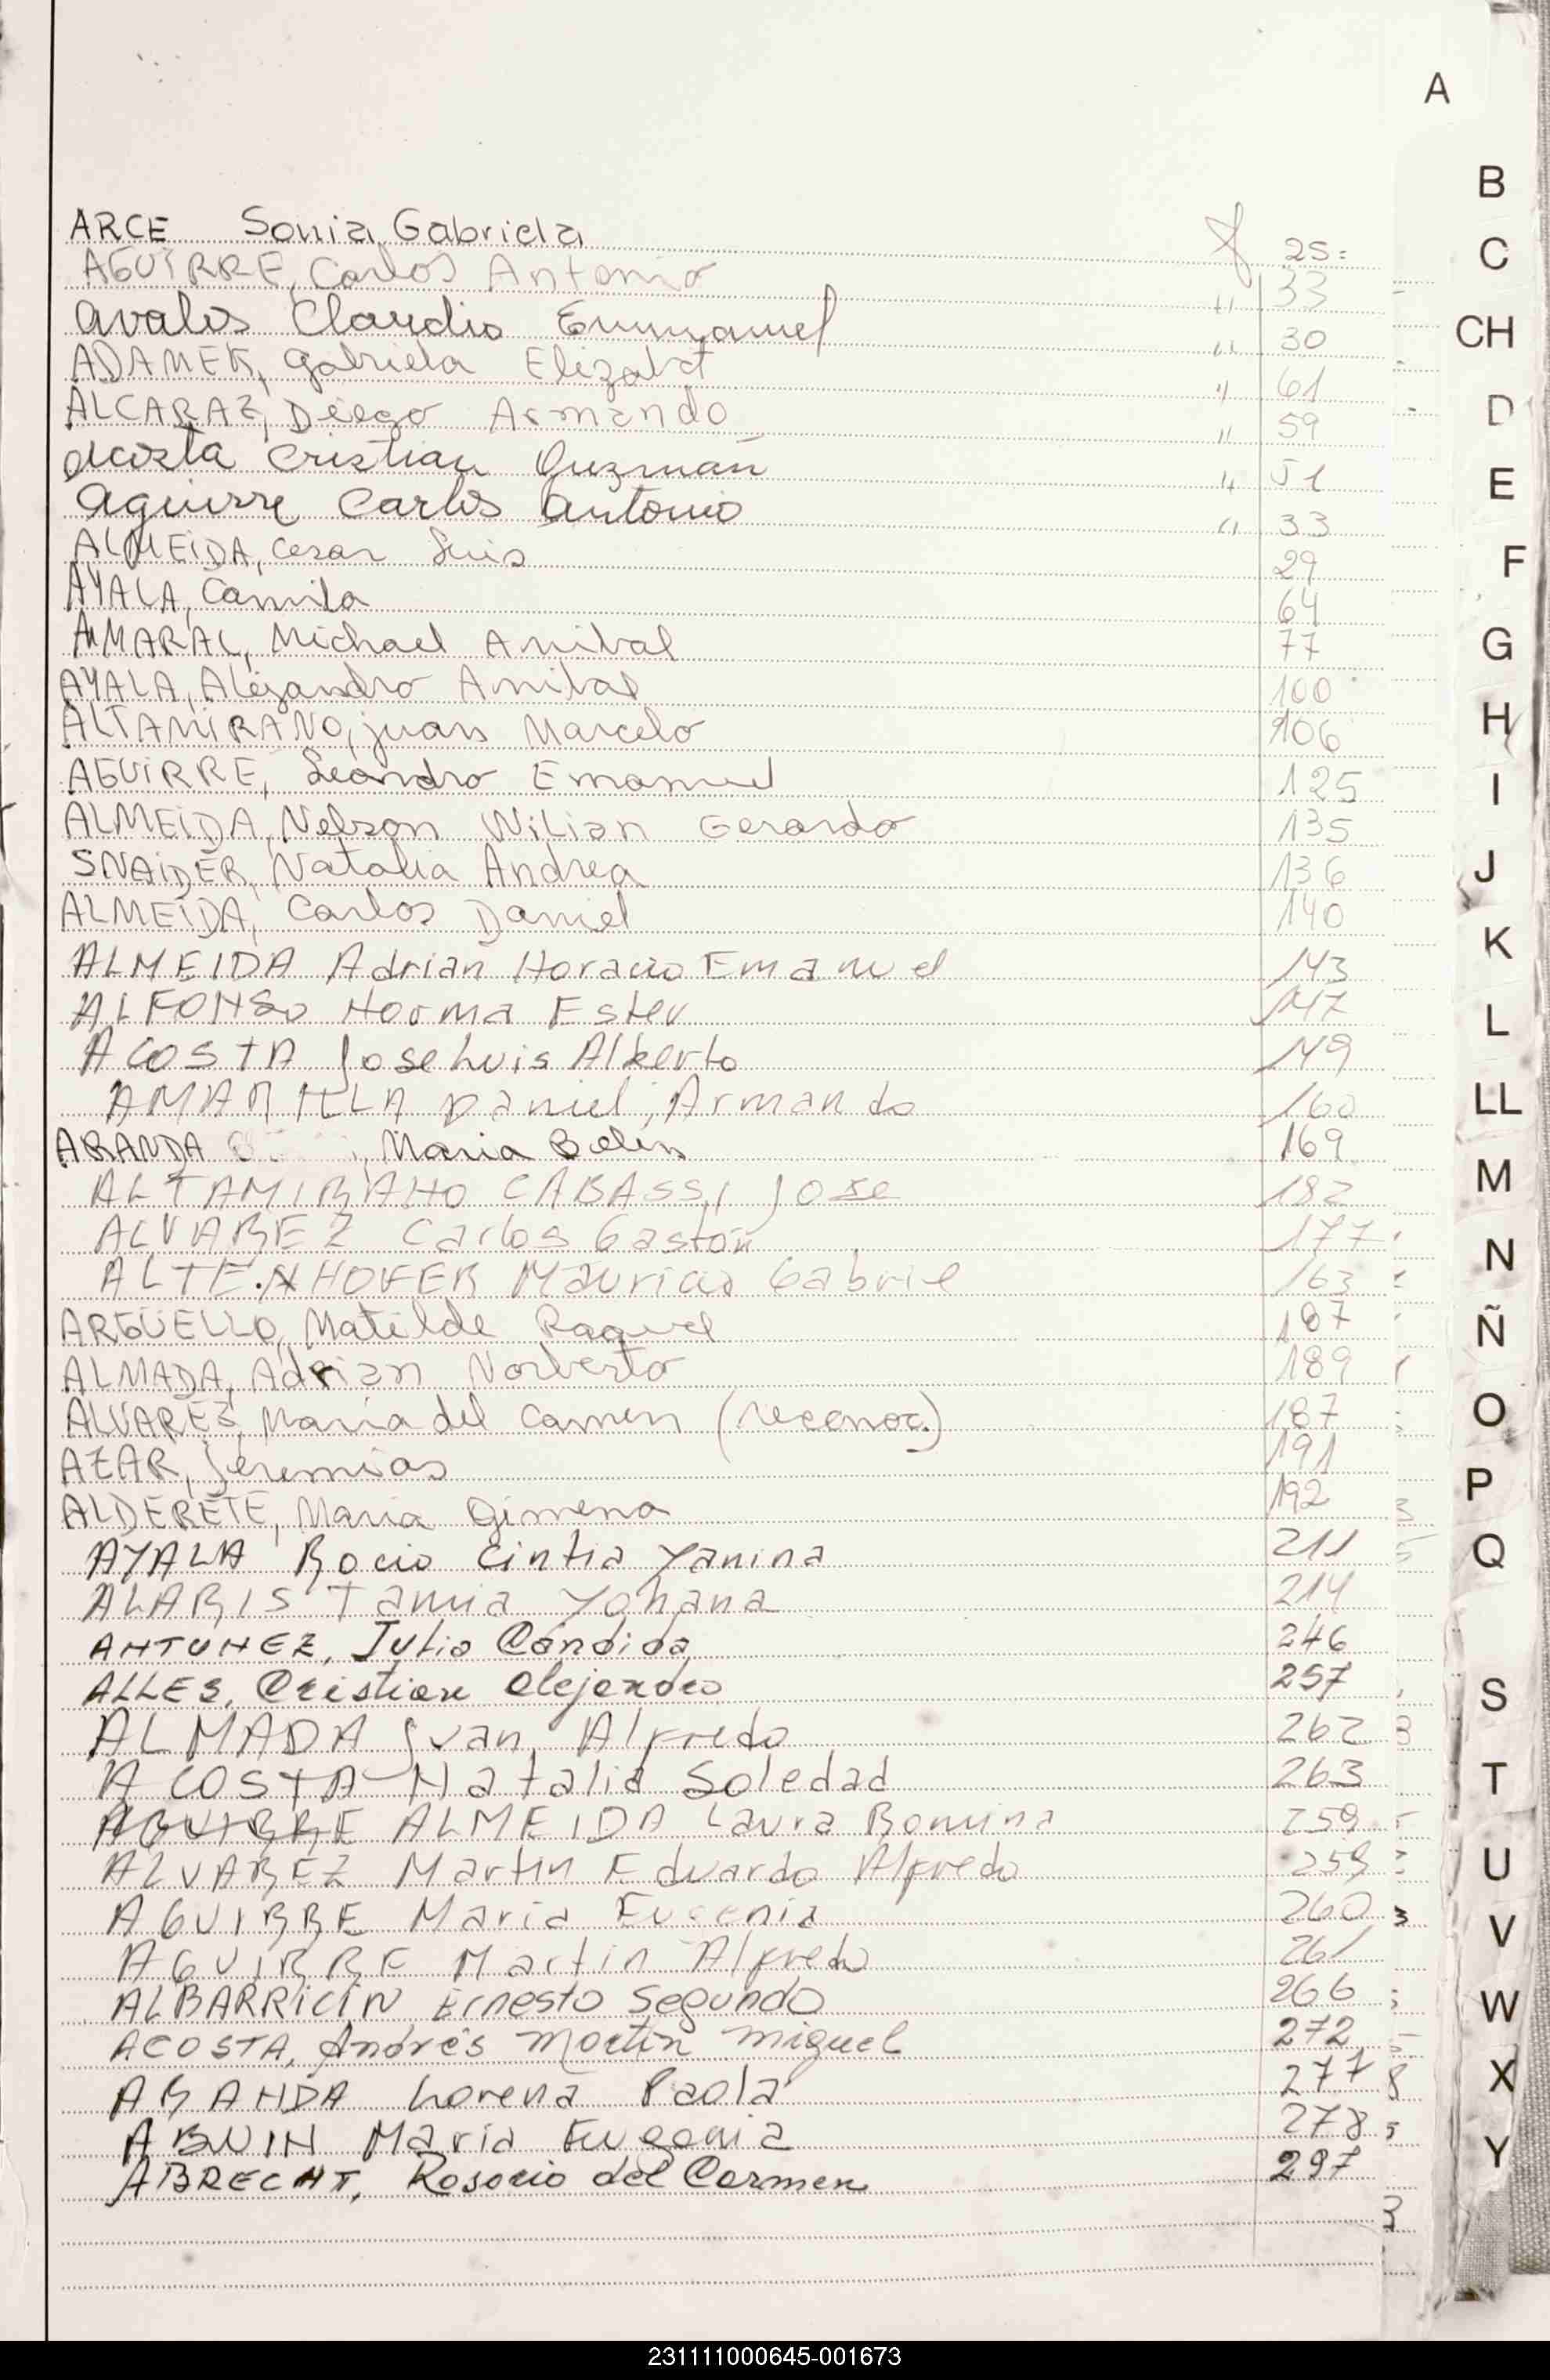 A
B
C
CH
D
E
F
G
H
I
J
K
L
LL
M
N
Ñ
O
P
Q
S
T
U
V
W
X
Y
ARCE Sonia Gabriela f 25=
AGUIRRE, Carlos Antonio " 33
Avalos Claudio Emmanuel " 30
ADAMEK, Gabriela Elizabet " 61
ALCARAZ, Diego Armando " 59
Acosta Cristian Guzmán " 51
Aguirre Carlos Antonio " 33
ALMEIDA, Cesar Luis 29
AYALA, Camila 64
AMARAL, Michael Anibal 77
AYALA, Alejandro Anibal 100
ALTAMIRANO, Juan Marcelo 106
AGUIRRE, Leandro Emanuel 125
ALMEIDA, Nelson Wilian Gerardo 135
SNAIDER, Natalia Andrea 136
ALMEIDA, Carlos Daniel 140
ALMEIDA Adrian Horacio Emanuel 143
ALFONSO Norma Ester 147
ACOSTA Jose Luis Alberto 149
AMARILLA Daniel, Armando 160
ARANDA , Maria Belen 169
ALTAMIRANO CABASSI Jose 182
ALVAREZ Carlos Gastón 177
ALTENHOFER Mauricio Gabriel 163
ARGÜELLO, Matilde Raquel 187
ALMADA, Adrian Norberto 189
ALVAREZ, Maria del Carmen (reconoc.) 187
AZAR, Jeremias 191
ALDERETE, Maria Gimena 192
AYALA Rocio Cintia Yanina 211
ALARIS Tania Yohana 214
ANTUNEZ, Julio Cándido 246
ALLES, Cristian Alejandro 257
ALMADA Ivan, Alfredo 262
ACOSTA Natalia Soledad 263
AGUIRRE ALMEIDA Laura Romina 259
ALVAREZ Martin Eduardo Alfredo 259
AGUIRRE Maria Eugenia 260
AGUIRRE Martin Alfredo 261
ALBARRICIN Ernesto Segundo 266
ACOSTA, Andrés Martín Miguel 272
ARANDA Lorena Paola 277
ABUIN Maria Eugenia 278
ABRECHT, Rosario del Carmen 297
231111000645-001673